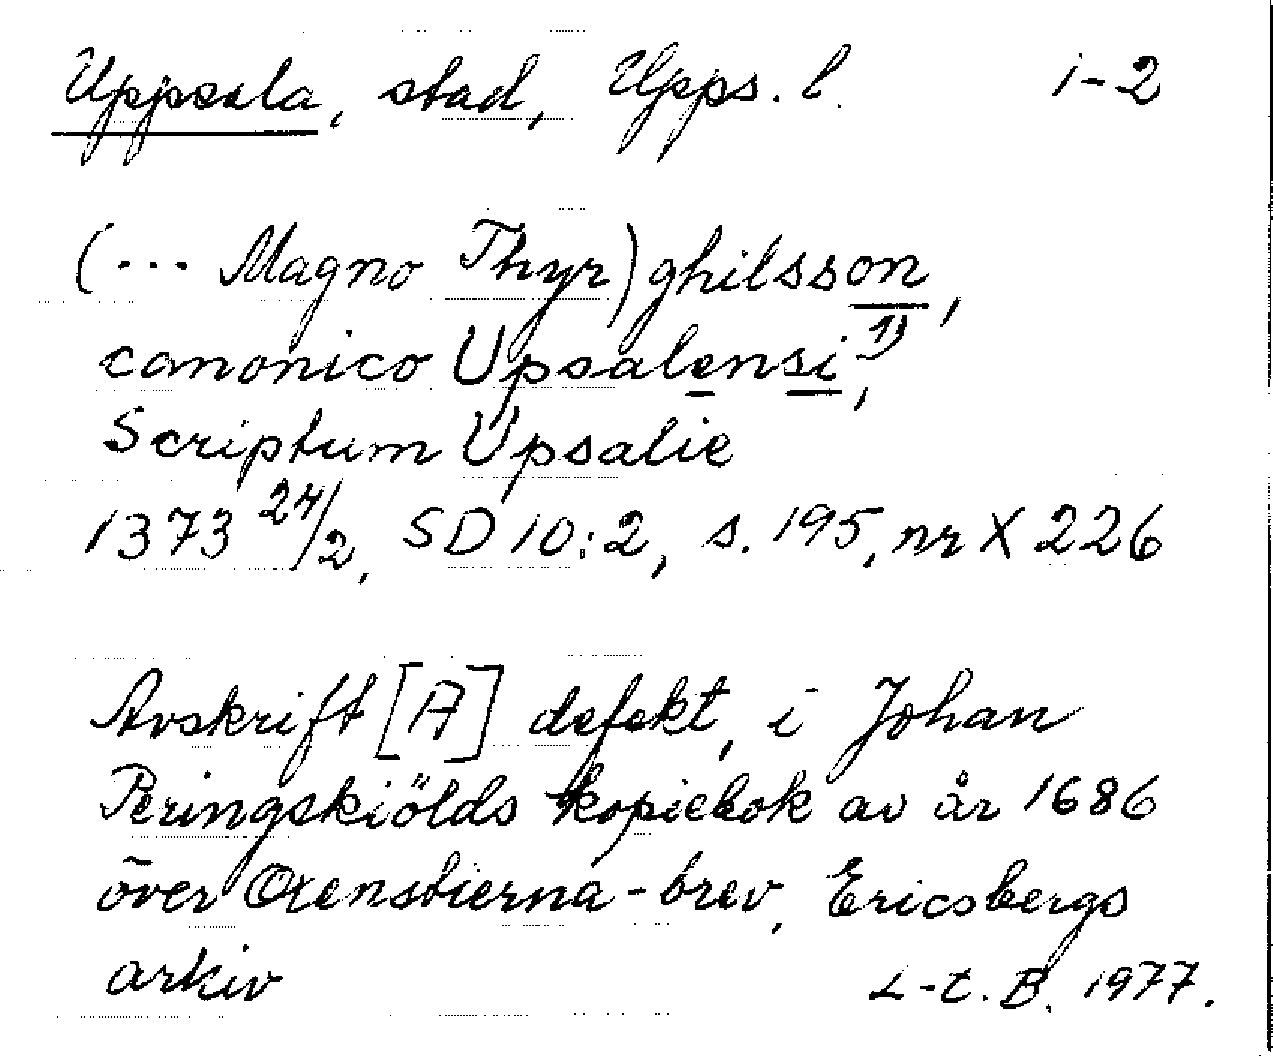 Uppsala, stad, Upps. l. 1-2
(... Magno Thyr)ghilsson,
canonico Upsalensi 1),
Scriptum Upsalie
1373 24/2, SD 10:2, s. 195, nr X 226
Avskrift [A] defekt, i Johan
Peringskiölds kopiebok av år 1686
över Oxenstierna-brev, Ericsbergs
arkiv L-t. B. 1977.